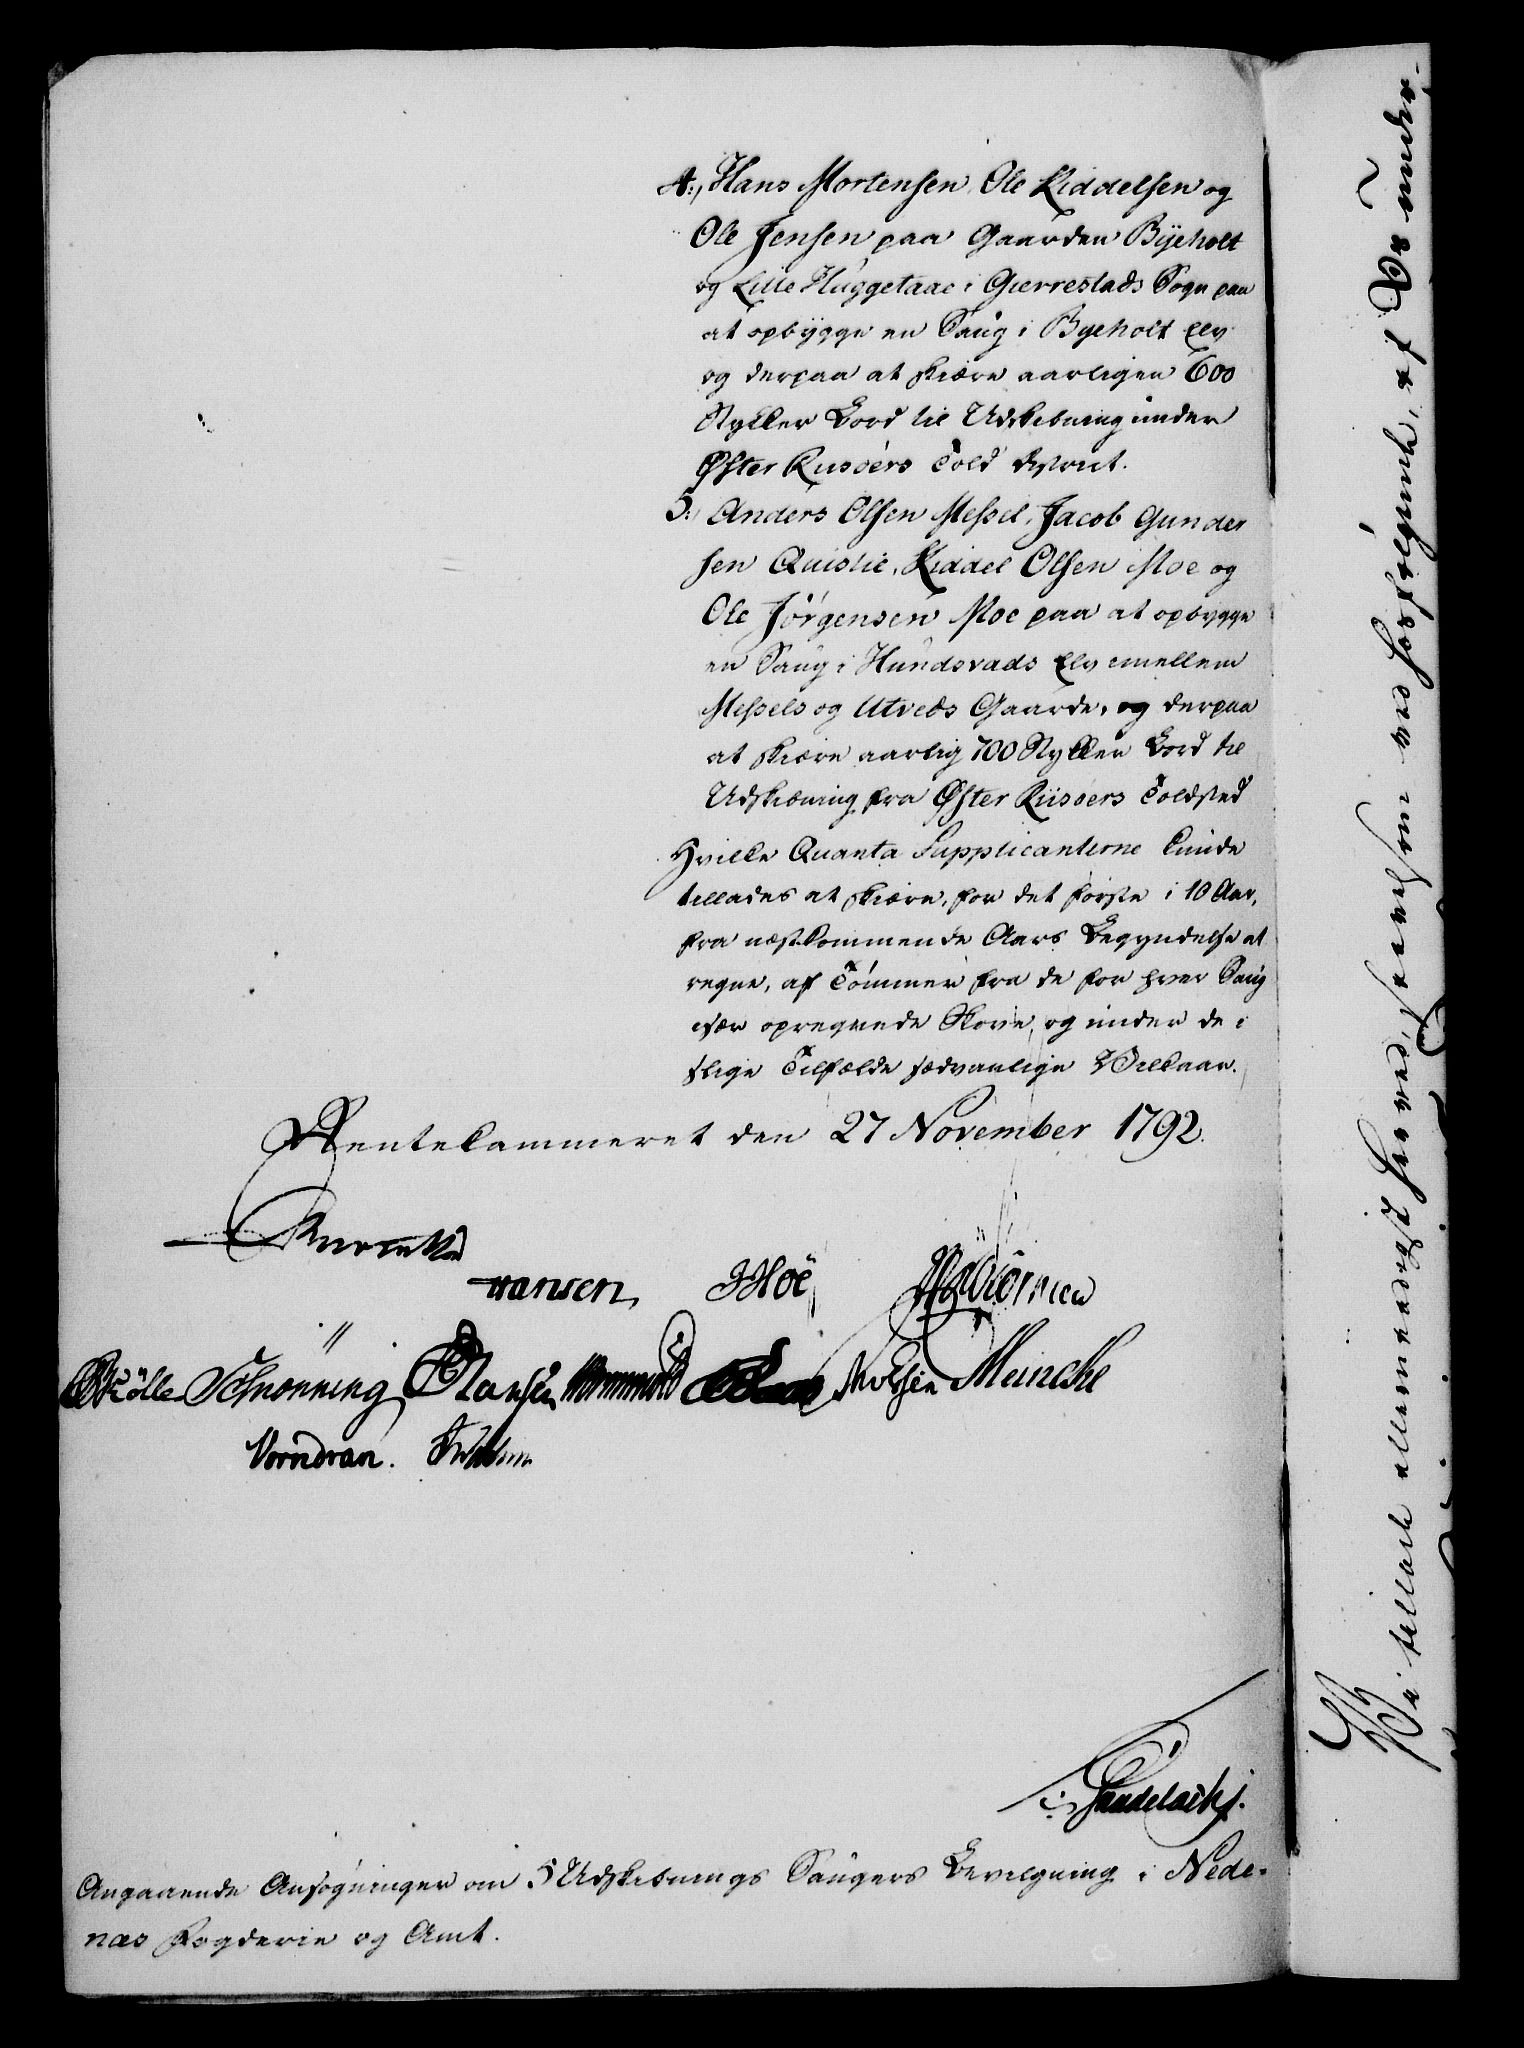 4:, Hans Mortensen, Ole Kiddelsen og
Ole Jensen paa Gaarden Byeholt
og Lille Huggetaae i Gierrestads Sogn paa
at opbygge en Saug i Byeholt Elv
og derpaa at skiære aarligen 600
Stykker Bord til Udskibning under
Øster Riisøers Told district.
5:, Anders Olsen Messel, Jacob Gunder
sen Quislie, Kiddel Olsen Moe og
Ole Jörgensen Moe paa at opbygge
en Saug i Hundsvads Elv imellem
Messels og Utveds Gaarde, og derpaa
at skiære aarlig 700 Stykker Bord til
Udskibning fra Øster Riisøers Toldsted
Hvilke Quanta Supplicanterne kunde
tillades at skiære, for det første i 10 Aar,
fra næstkommende Aars Begyndelse at
regne, af Tømmer fra de for hver Saug
især opregnede Skove, og under de i
slige Tilfælde sædvanlige Vilkaar.
Rentekammeret den 27 November 1792.
Hansen JHoë
Schrønning Hansen Meincke
Vorndran.
Angaaende Ansøgninger om 5 Udskibnings Saugers Bevilgning i Nede-
næs Fogderie og Amt.
Vi tillade allernaadigst herved, saavelsom ved hosfølgende, af Os under